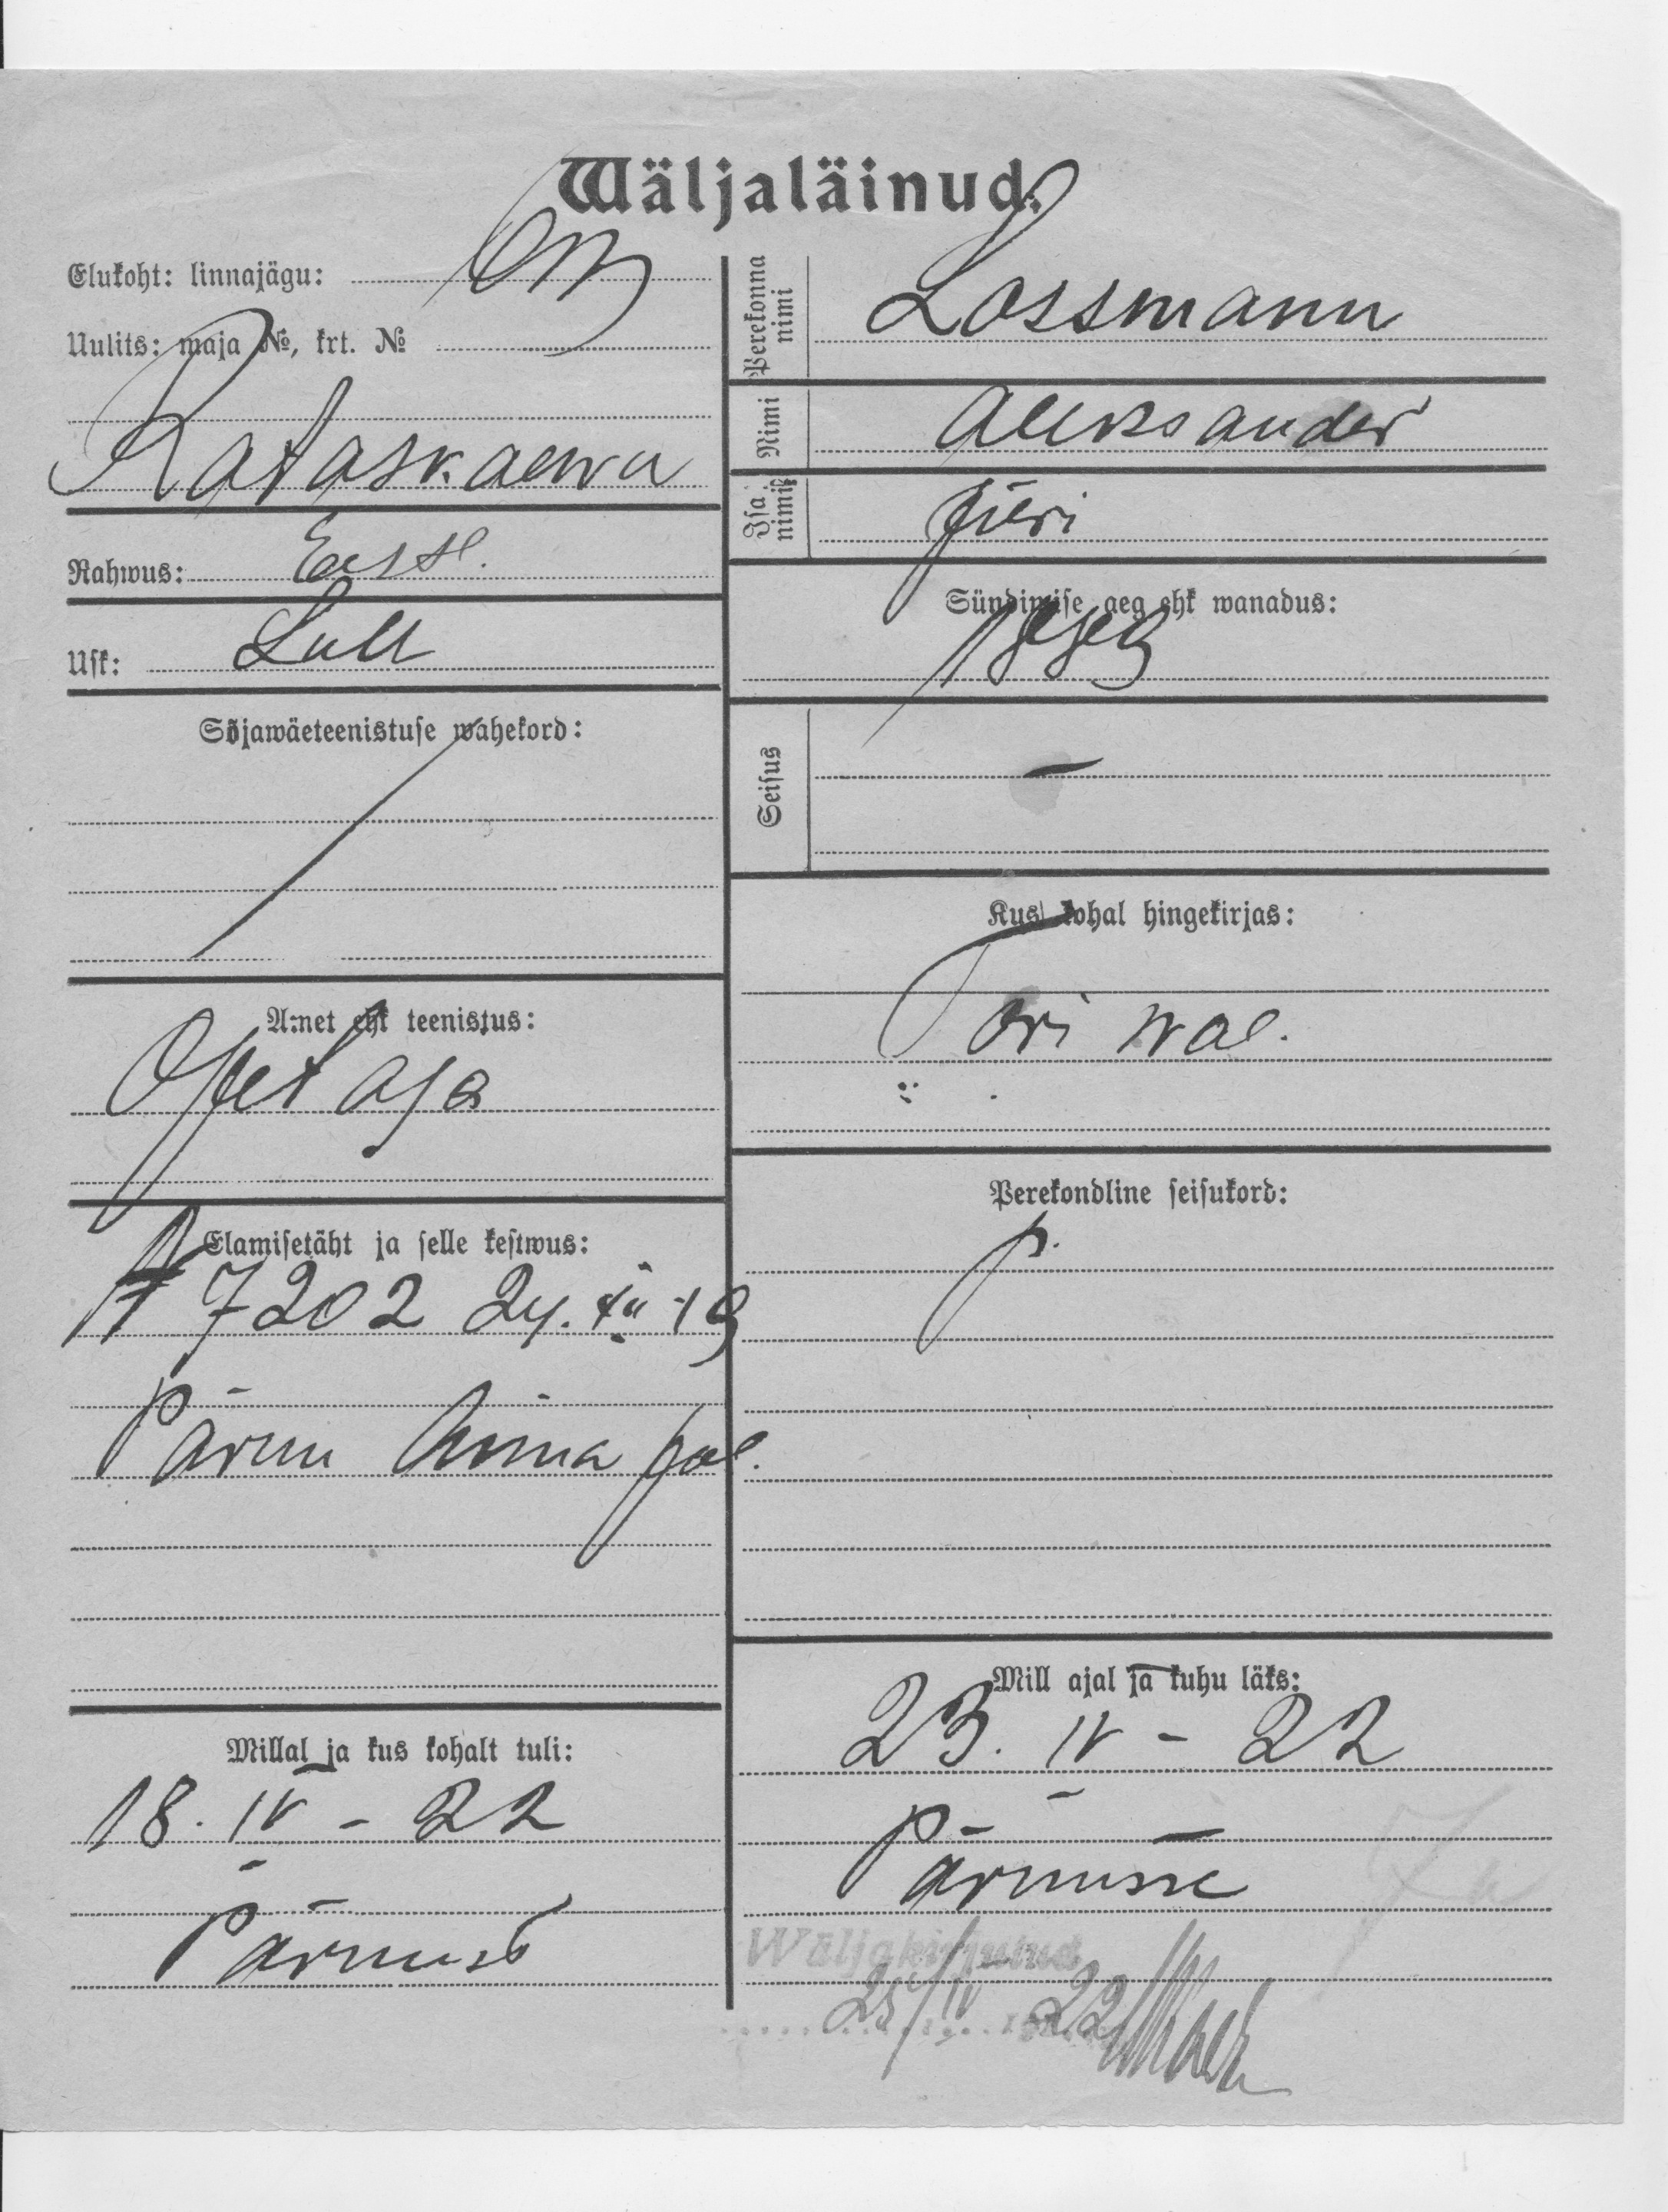 Wäljaläinud:
Elukoht: linnajägu:
Uulits: maja №, krt. №
Rataskaewu
Rahwus: Eestl.
Usk: Lutt
Sõjawäeteenistuse wahekord:
Amet ehk teenistus:
Õpetaja
Elamisetäht ja selle kestwus:
7202 24. XII 19
Pärnu linna pol.
Millal ja kus kohalt tuli:
18. IV - 22
Pärnust
Perekonna nimi Lossmann
Nimi Aleksander
Isa nimi Jüri
Sündimise aeg ehk wanadus:
Seisus —
Kus kohal hingekirjas:
Tori wal.
Perekondline seisukord:
p.
Mill ajal ja kuhu läks:
23. IV - 22
Pärnusse
Wäljakirjutud
25/IV 22